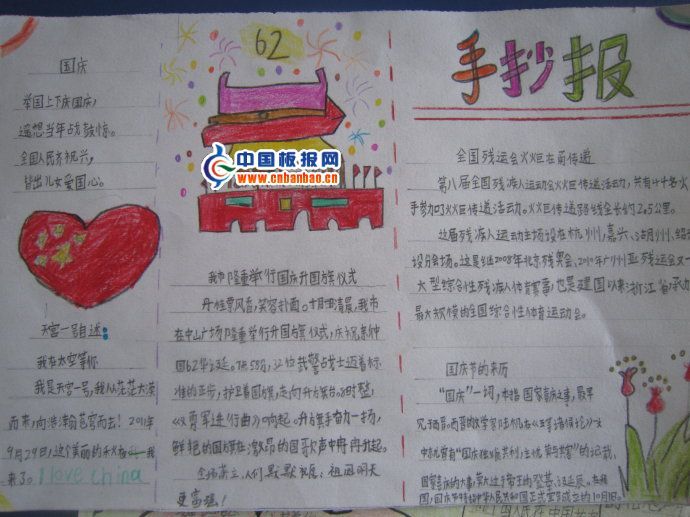 国庆
举国上下庆国庆,
遥想当年战鼓惊。
全国人民齐祝兴,
皆出儿女爱国心。
天宫一号自述:
我在太空等你
我是天宫一号,我从茫茫大漠
而来,向浩渺的苍穹而去!2011年
9月29日,这个美丽的千秋 我
来了。I love china
62
中国板报网
www.cnbanbao.cn
我市隆重举行国庆升国旗仪式
丹桂飘香,笑容扑面。十月一日清晨,我市
在中山广场隆重举行升国旗仪式,庆祝新中
国62华诞。7点58分,32位武警战士迈着标
准的正步,护卫着国旗,走向升旗台。8时整,
《义勇军进行曲》响起。升旗手奋力一扬,
鲜艳的国旗在激昂的国歌声中冉冉升起。
全场肃立,人们默默祝愿,祖国明天
更富强!
手抄报
全国残运会火炬在前传递
第八届全国残疾人运动会火炬传递活动,共有 名火
手参加火炬传递活动。火炬传递路线全长约2.5公里。
这届残疾人运动主场设在杭州,嘉兴、湖州,绍
设分会场。这是继2008年北京残奥会、2010年广州亚残运会又一
大型综合性残疾人体育赛事,也是建国以来浙江省承办
最大规模的全国综合性体育运动会。
国庆节的来历
“国庆”一词,本指国家喜庆之事,最早
见于西晋。西晋的文学家陆机在《五等诸侯论》一文
中就曾有“国庆独飨其利,主忧莫与其害”的记载、
国家喜庆的大事,莫大过于帝王的登基、诞辰。在我
国,国庆节特指中华人民共和国正式宣告成立的10月1日。